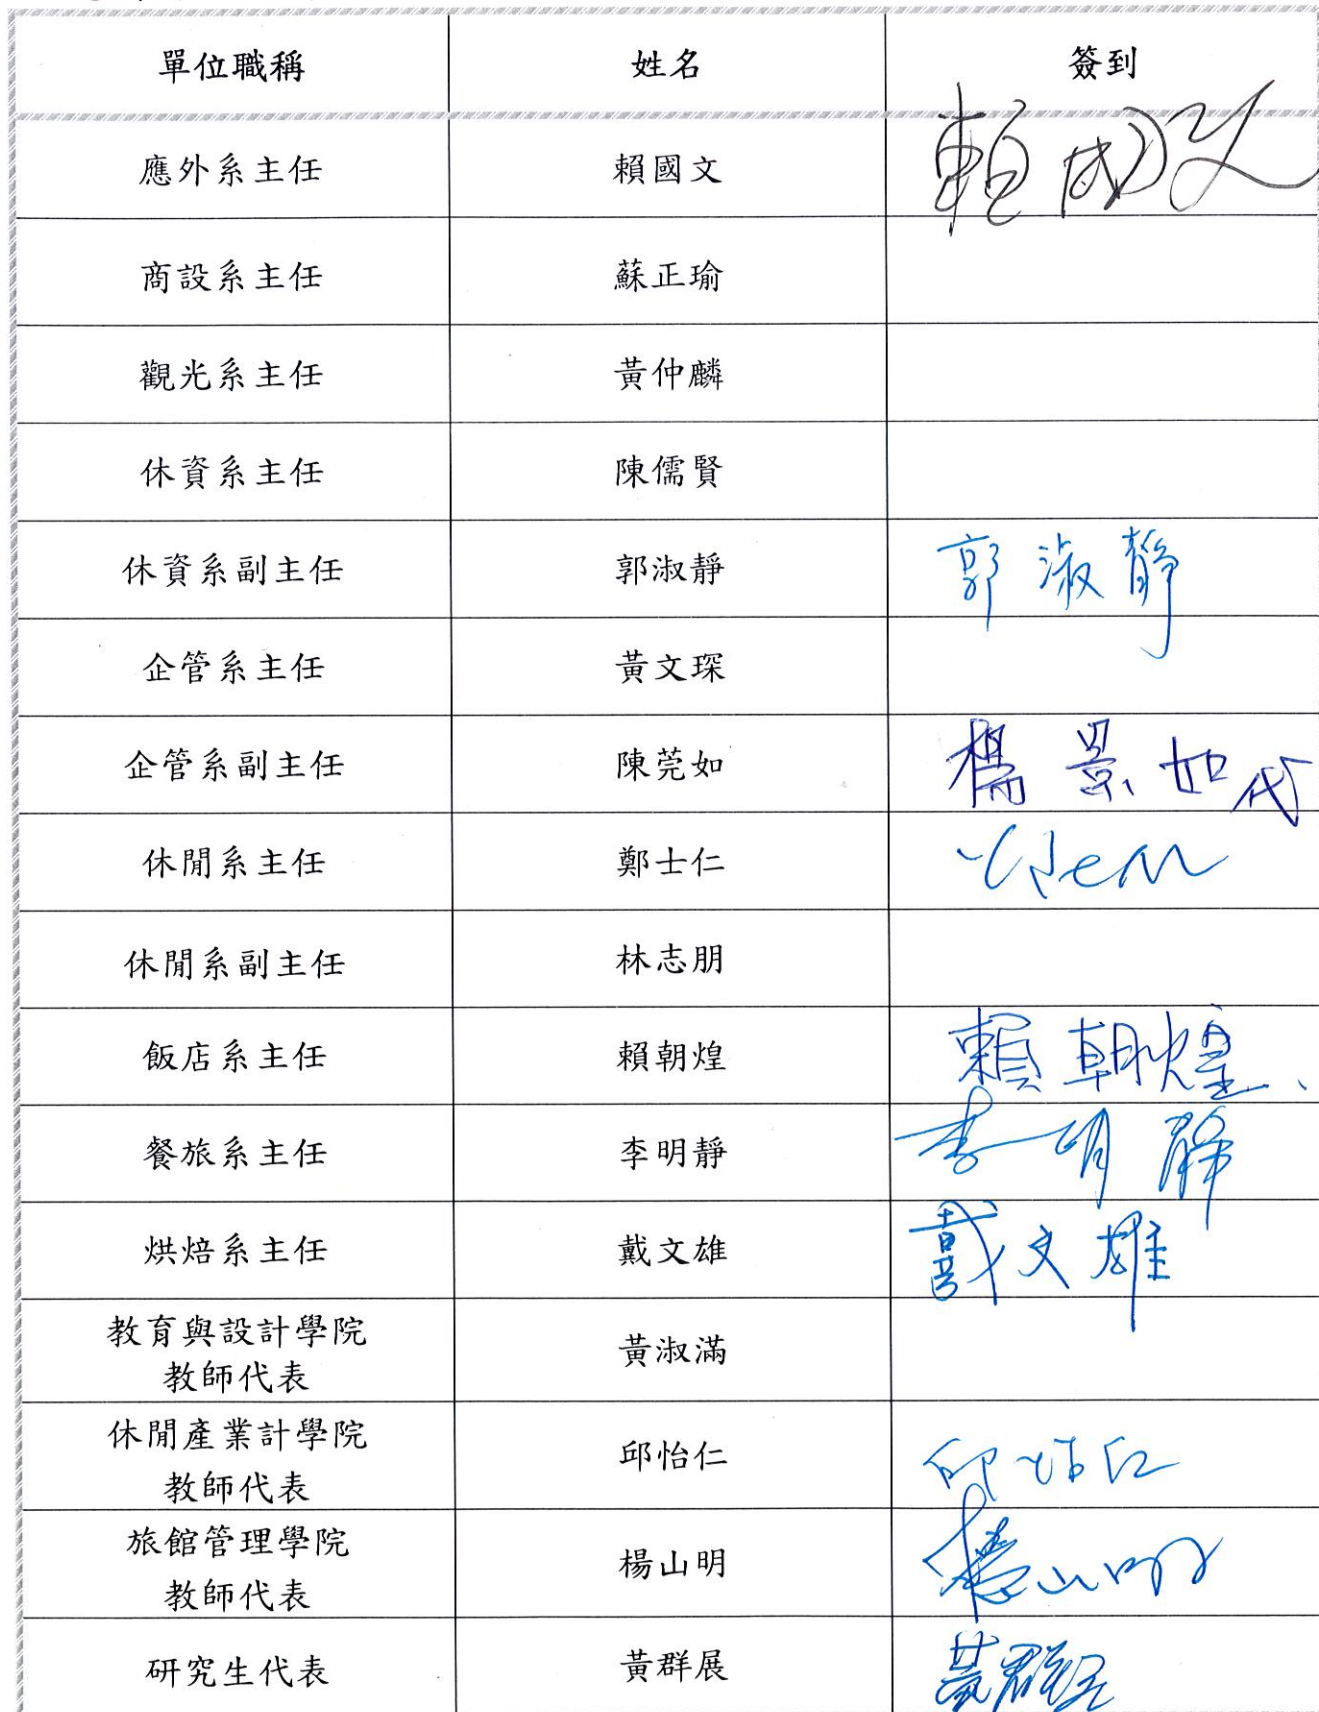 單位職稱 姓名 簽到
應外系主任 賴國文
商設系主任 蘇正瑜
觀光系主任 黃仲麟
休資系主任 陳儒賢
休資系副主任 郭淑靜 郭淑靜
企管系主任 黃文琛
企管系副主任 陳莞如 楊景如代
休閒系主任 鄭士仁
休閒系副主任 林志朋
飯店系主任 賴朝煌 賴朝煌
餐旅系主任 李明靜 李明靜
烘焙系主任 戴文雄 戴文雄
教育與設計學院
教師代表 黃淑滿
休閒產業計學院
教師代表 邱怡仁 邱怡仁
旅館管理學院
教師代表 楊山明 楊山明
研究生代表 黃群展 黃群展